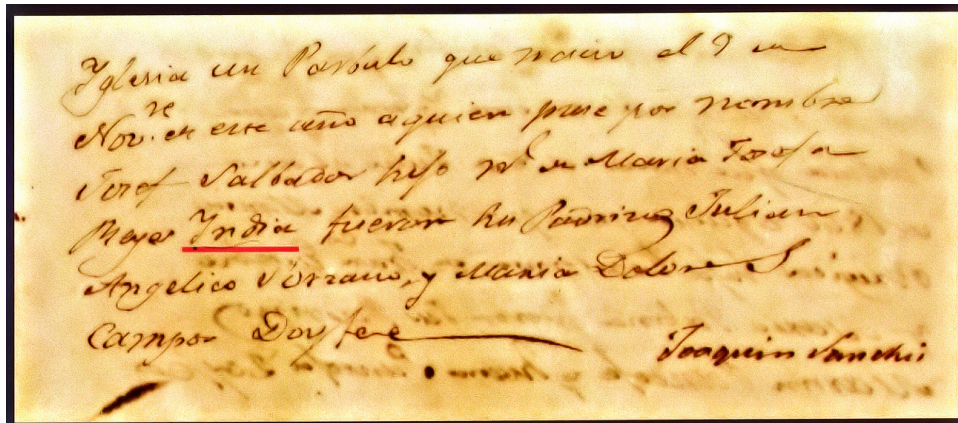 Yglesia un Parbulo que nacio el 9 de
Nov.re de este año aquien puse por nombre
Josef Salbador hijo nl. de Maria Josefa
Reyes Yndia fueron sus Padrinos Julian
Angelico Sorzano, y Maria Dolores S
Campos Doy fee
Joaquin Sanchis